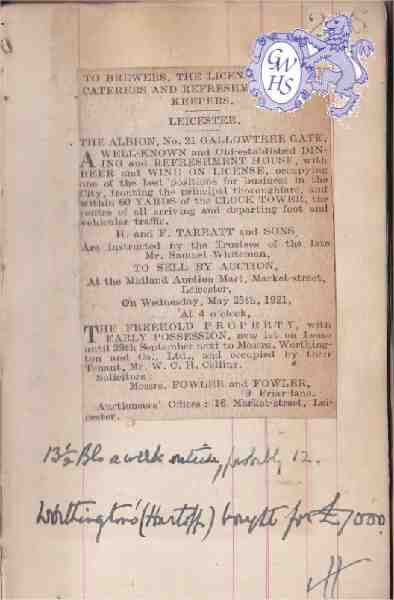 TO BREWERS, THE LICEN
CATERERS AND REFRESHM
KEEPERS.
LEICESTER.
THE ALBION, No. 21 GALLOWTREE GATE,
A WELL-KNOWN and Old-established DIN-
ING and REFRESHMENT HOUSE, with
BEER and WINE ON LICENSE, occupying
one of the best positions for business in the
City, fronting the principal thoroughfare, and
within 60 YARDS of the CLOCK TOWER, the
centre of all arriving and departing foot and
vehicular traffic.
R. and F. TARRATT and SONS
Are instructed by the Trustees of the late
Mr. Samuel Whiteman,
TO SELL BY AUCTION,
At the Midland Auction Mart, Market-street,
Leicester,
On Wednesday, May 25th, 1921,
At 4 o'clock,
THE FREEHOLD PROPERTY, with
EARLY POSSESSION, now let on Lease
until 29th September next to Messrs. Worthing-
ton and Co., Ltd., and occupied by their
Tenant, Mr. W. C. H.
Solicitors:
Messrs. FOWLER and FOWLER,
9 Friar-lane.
Auctioneers' Offices: 16, Market-street, Lei-
cester.
GWHS
13½ Bls a week outside, probably 12.
Worthington's (Hartopp) bought for £7000